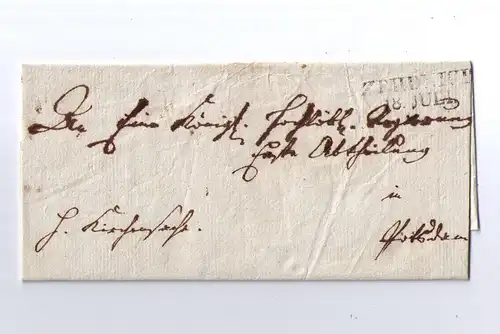 ZEHDENICK
8. JUL
An Eine Königl. Hochlöbl. Regierung
Erste Abtheilung
in
H. Kirchensache. Potsdam